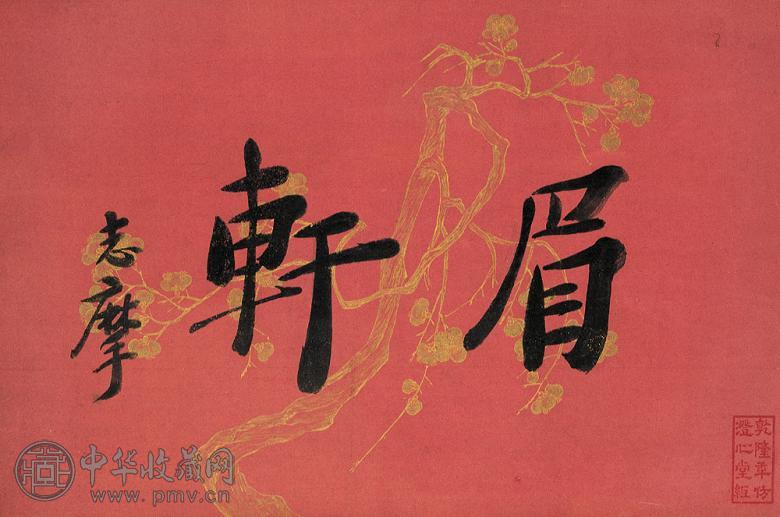 眉軒
志摩
乾隆年仿
澄心堂紙
中华收藏网
www.pmv.cn